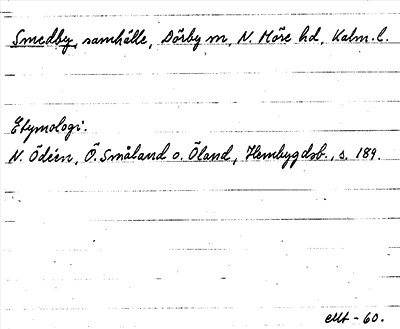 Smedby, samhälle, Dörby m, N. Möre hd, Kalm. l.
Etymologi.
N. Ödéen, Ö. Småland o. Öland, Hembygdsb., s. 189.
-60.